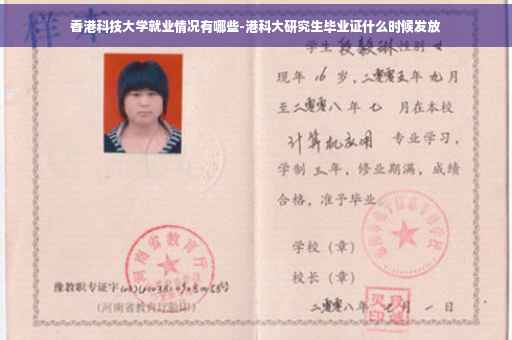 香港科技大学就业情况有哪些-港科大研究生毕业证什么时候发放
样本
学生段毅琳性别女
现年16岁,二零零五年九月
至二零零八年七月在本校
计算机应用 专业学习,
学制三年,修业期满,成绩
合格,准予毕业
学校(章)
校长(章)
二零零八年 月一日
河南省教育厅
豫教职专证字
(河南省教育厅验印)